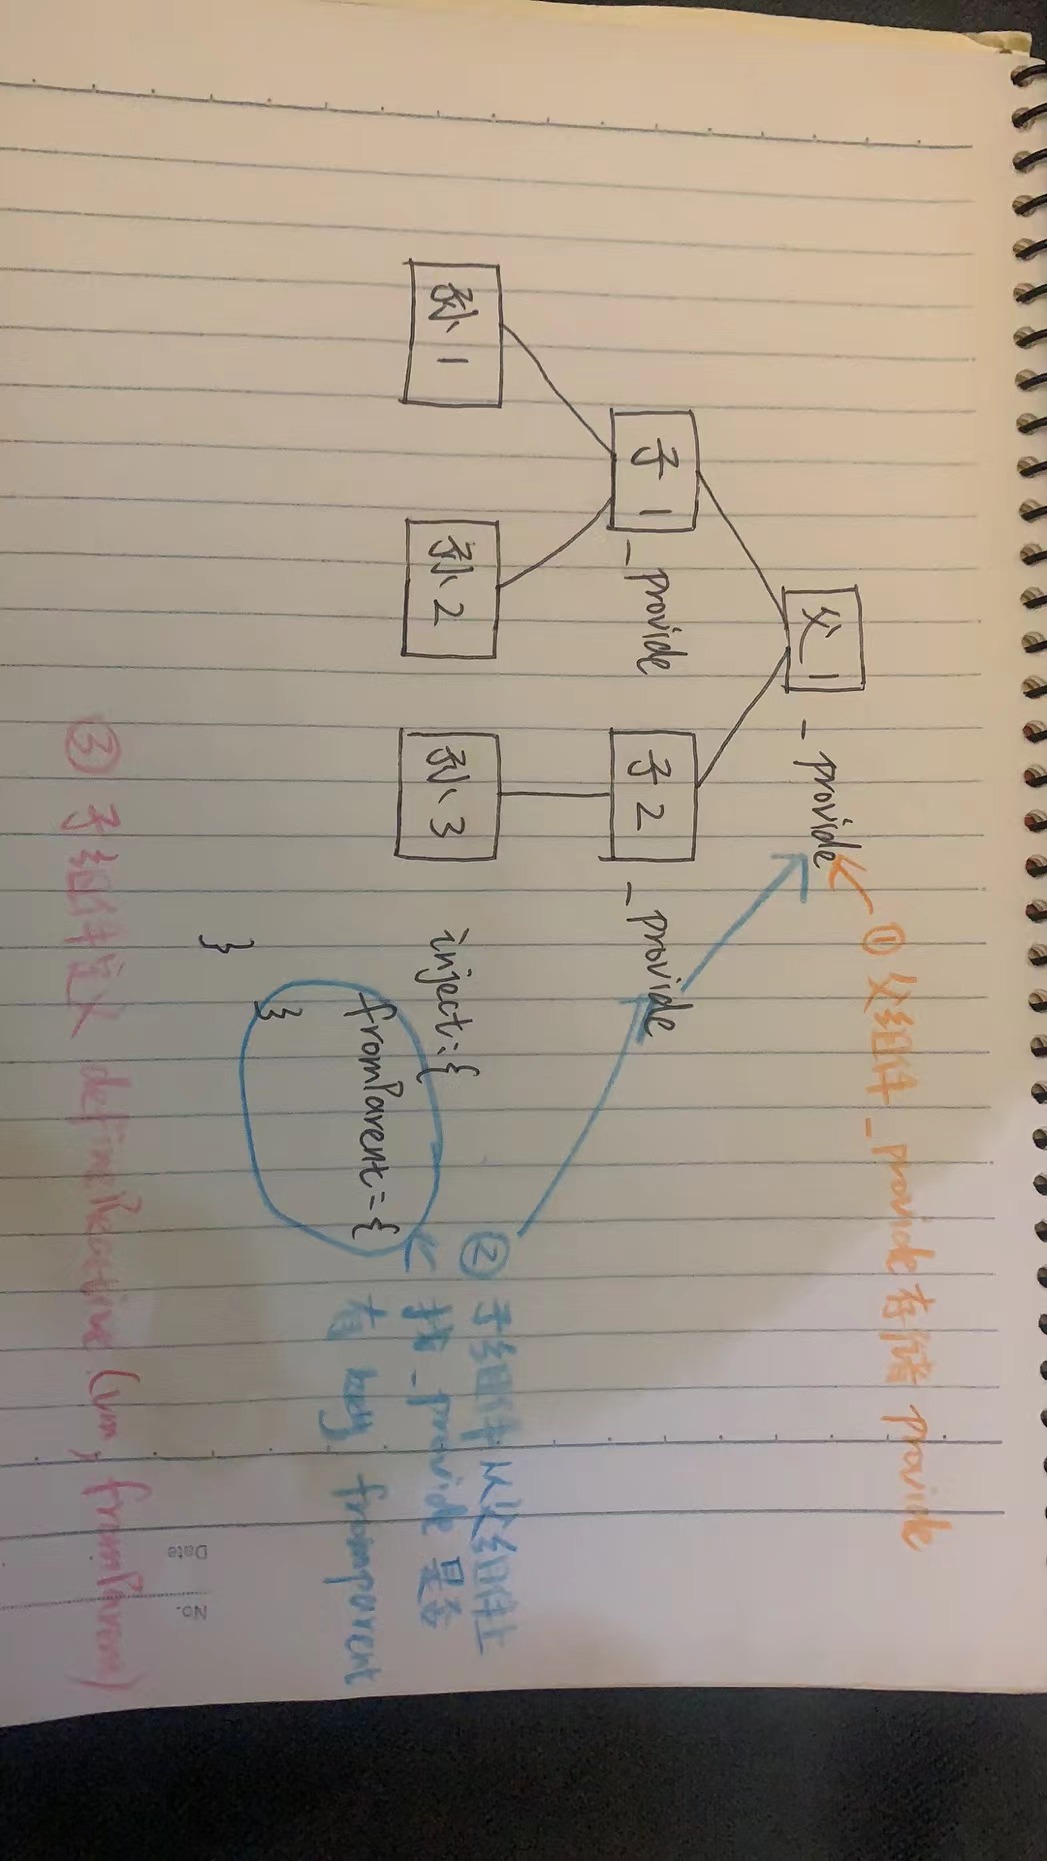 ① 父组件 _provide 存储 provide
父 1 _provide
子 1 _provide 子 2 _provide
孙 1 孙 2 孙 3 inject:{
fromParent={
}
}
② 子组件从父组件上
找 _provide 是否
有 fromparent
③ 子组件定义 defineReactive (vm, fromParent)
No.
Date